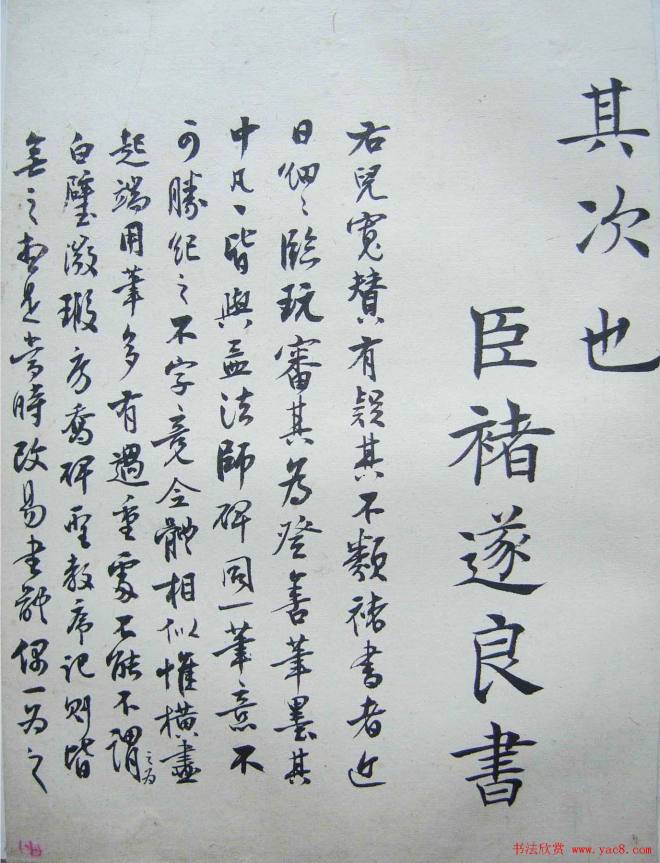 其次也
臣褚遂良書
右兒寬贊有疑其不類褚書者近
日細〻臨玩審其為登善筆墨其
中凡〻皆與孟法師碑同一筆意不
可勝紀之不字竟令體相似惟橫畫
起端用筆多有過重處不能不謂之為
白璧微瑕房喬碑聖教序記則皆
無之想是當時改易書體偶一為之
书法欣赏 www.yac8.com